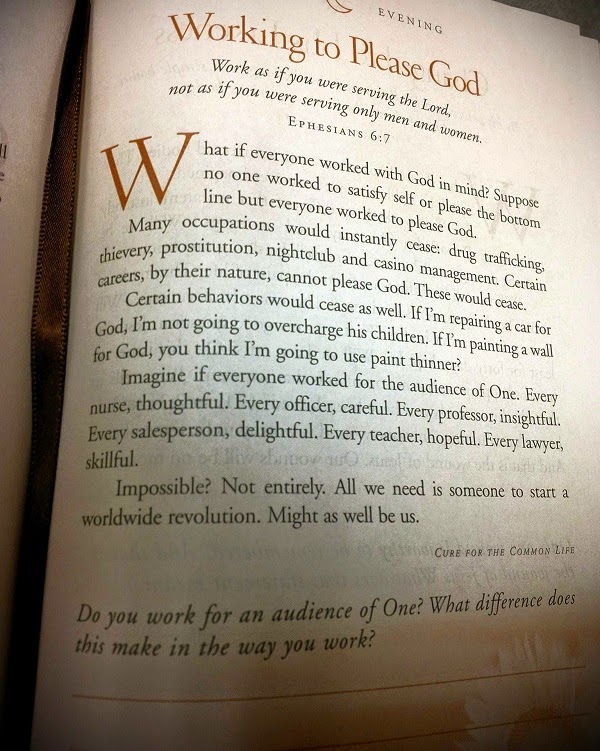 EVENING
Working to Please God
Work as if you were serving the Lord,
not as if you were serving only men and women.
EPHESIANS 6:7
What if everyone worked with God in mind? Suppose
no one worked to satisfy self or please the bottom
line but everyone worked to please God.
Many occupations would instantly cease: drug trafficking,
thievery, prostitution, nightclub and casino management. Certain
careers, by their nature, cannot please God. These would cease.
Certain behaviors would cease as well. If I'm repairing a car for
God, I'm not going to overcharge his children. If I'm painting a wall
for God, you think I'm going to use paint thinner?
Imagine if everyone worked for the audience of One. Every
nurse, thoughtful. Every officer, careful. Every professor, insightful.
Every salesperson, delightful. Every teacher, hopeful. Every lawyer,
skillful.
Impossible? Not entirely. All we need is someone to start a
worldwide revolution. Might as well be us.
CURE FOR THE COMMON LIFE
Do you work for an audience of One? What difference does
this make in the way you work?